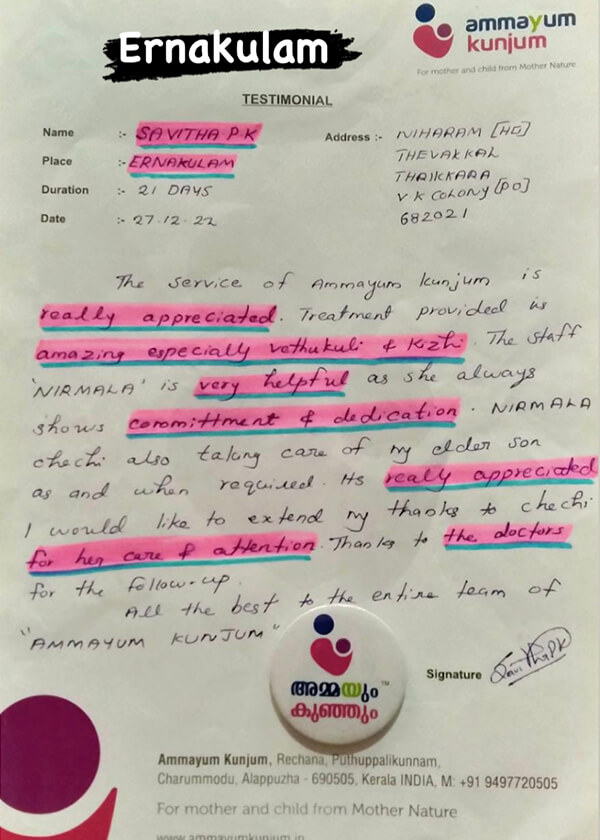 Ernakulam
ammayum
kunjum
For mother and child from Mother Nature
TESTIMONIAL
Name :- SAVITHA P K
Address :- NIHARAM [HO]
Place :- ERNAKULAM
THEVAKKAL
Duration :- 21 DAYS
THRIKKARA
V K COLONY [PO]
Date :- 27.12.22
682021
The service of Ammayum kunjum is
really appreciated. Treatment provided is
amazing especially vethukuli & Kizhi. The staff
'NIRMALA' is very helpful as she always
shows committment & dedication. NIRMALA
chechi also taking care of my elder son
as and when required. Its really appreciated
I would like to extend my thanks to chechi
for her care & attention. Thanks to the doctors
for the follow-up.
All the best to the entire team of
"AMMAYUM KUNJUM"
Signature SavithaPK
അമ്മയും TM
കുഞ്ഞും
Ammayum Kunjum, Rechana, Puthuppalikunnam,
Charummodu, Alappuzha - 690505, Kerala INDIA, M: +91 9497720505
For mother and child from Mother Nature
www.ammayumkunjum.in